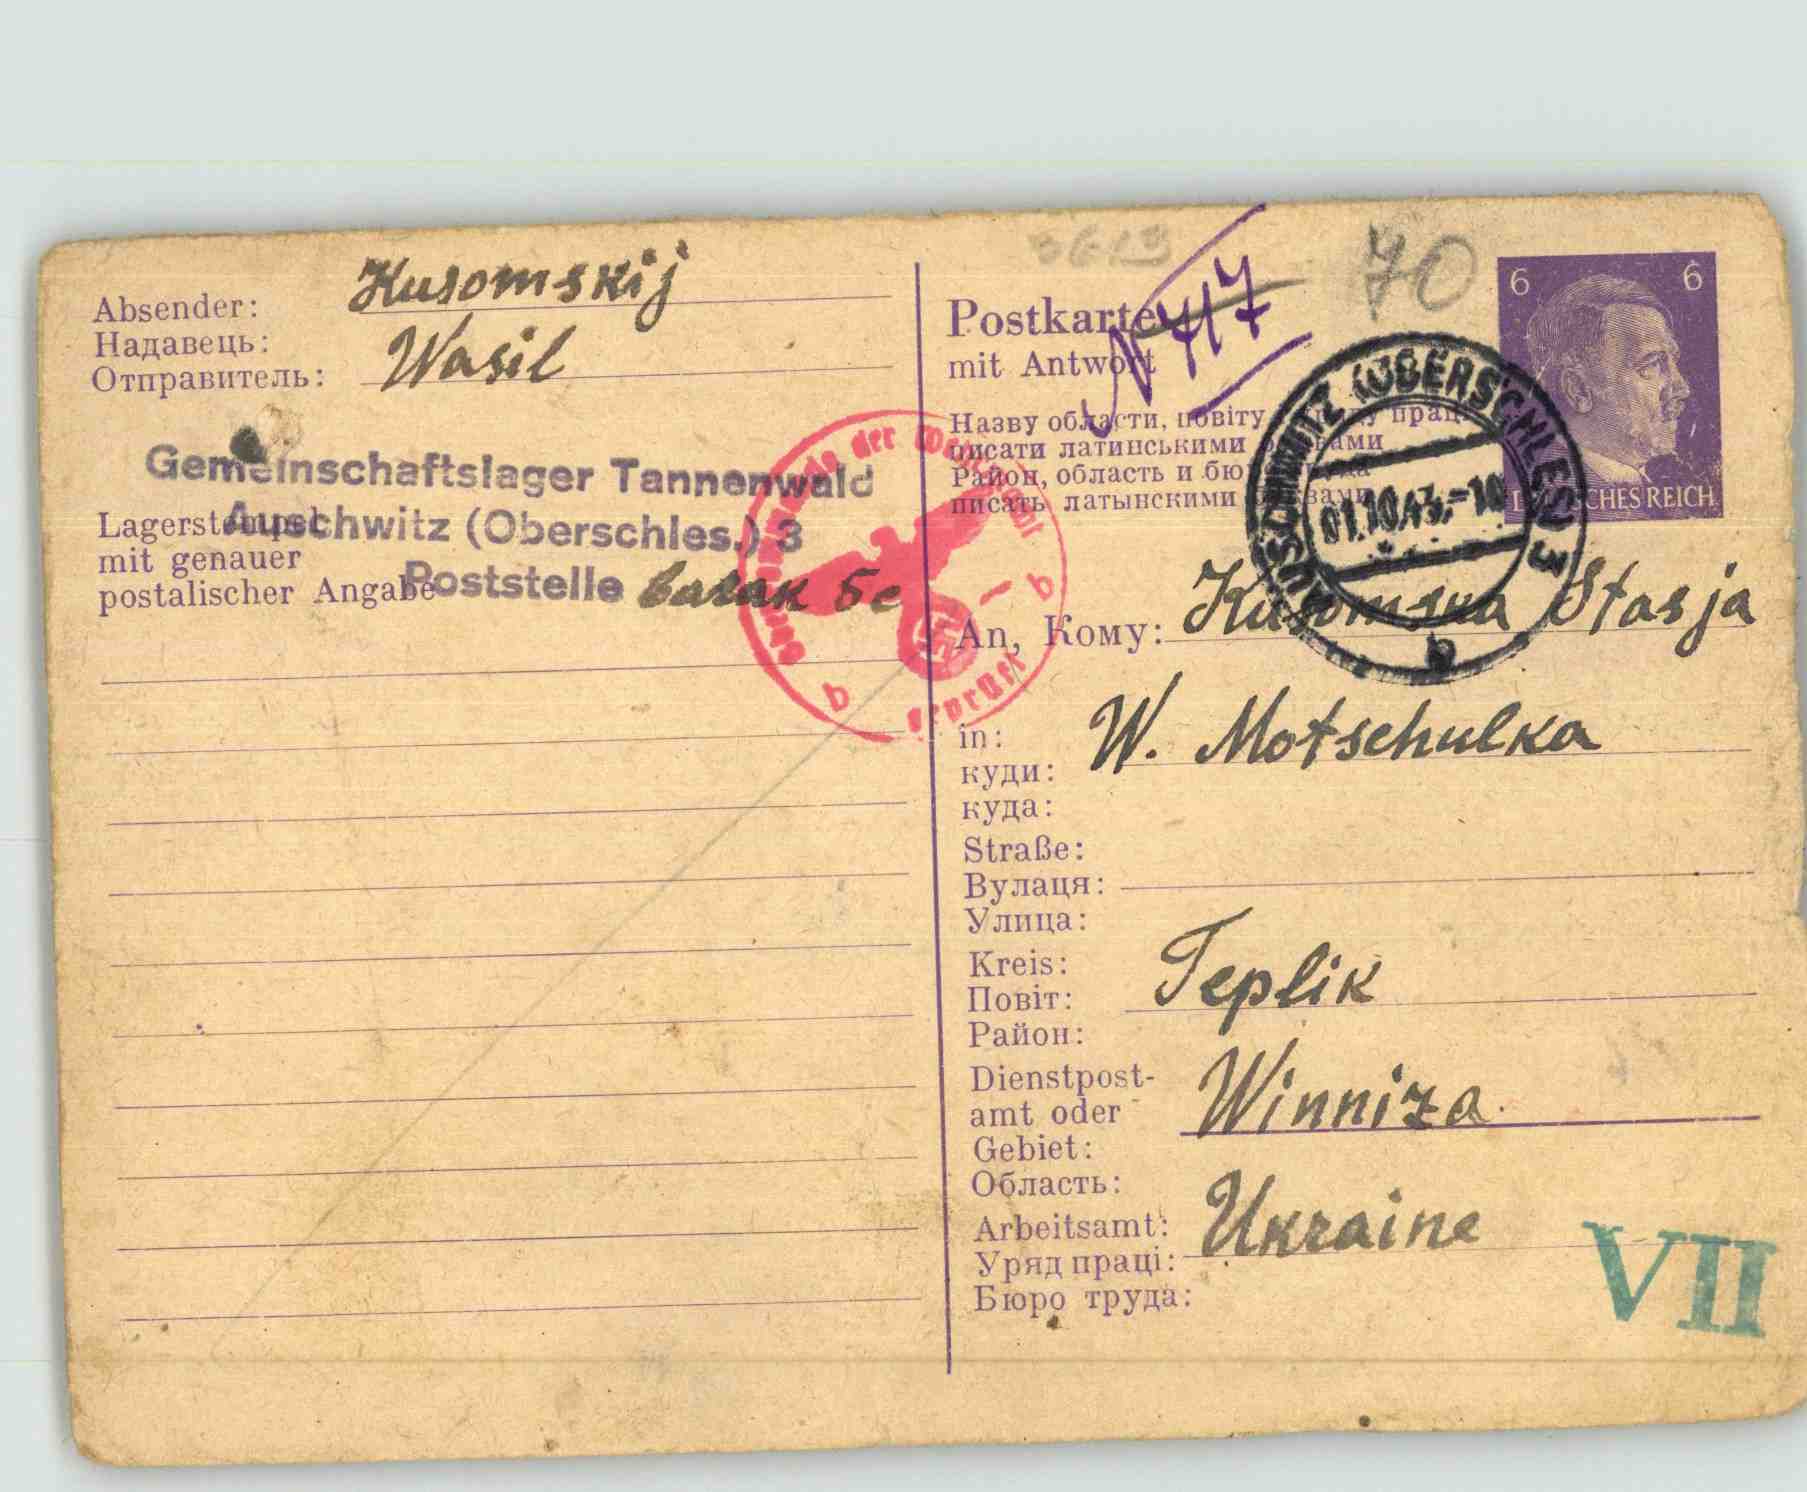 Absender:
Надавець:
Отправитель:
Kusomskij
Wasil
Gemeinschaftslager Tannenwald
Auschwitz (Oberschles.) 3
Poststelle barak 5c
Lagerstempel
mit genauer
postalischer Angabe
geprüft
b
b
3613
70
N 717
Postkarte
mit Antwort
6 6
DEUTSCHES REICH
AUSCHWITZ (OBERSCHLES) 3
01.10.43.-10
b
Назву области, повіту уряду праці
писати латинськими буквами
Район, область и бюро труда
писать латынскими буквами
An, Кому: Kusomska Stasja
in:
куди:
куда:
W. Motschulka
Straße:
Вулаця:
Улица:
Kreis:
Повіт:
Район:
Teplik
Dienstpost-
amt oder
Gebiet:
Область:
Winniza.
Arbeitsamt:
Уряд праці:
Бюро труда:
Ukraine
VII